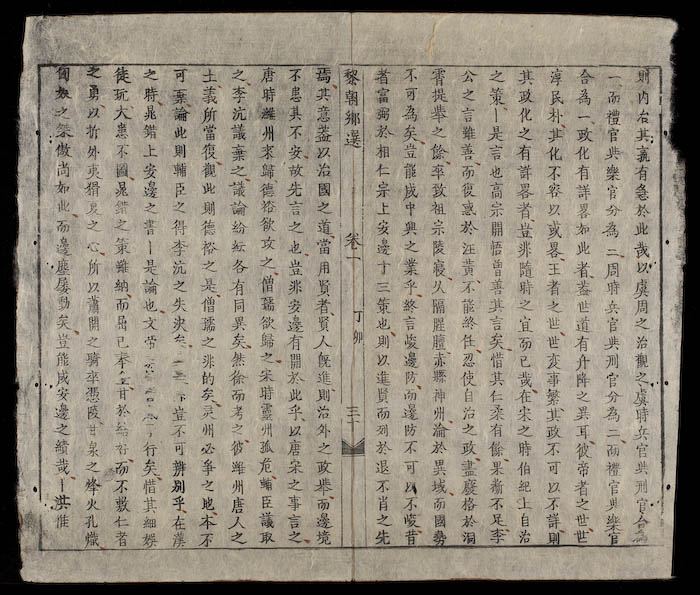 則內右其孰有急於此哉以虞周之治觀之虞時兵官與刑官合為
一而禮官與樂官分為二周時兵官與刑官分為二而禮官與樂官
合為一致化有詳畧如此者蓋世道有升降之異耳彼帝者之世世
淳民朴其化不容以或畧王者之世世变事繁其政不可以不詳則
其政化之有詳畧者豈非隨時之宜而已哉在宋之時伯紀上自治
之策｜是言也高宗開悟曾善其言矣惜其仁柔有餘果斷不足李
公之言雖善而復惑於汪黃不能終任忍使自治之政盡廢格於洞
霄提舉之餘卒致祖宗陵寢久隔腥膻赤縣神州淪於異域而國勢
不可為矣豈能成中興之業乎終言峻邊防而邊防不可以不峻昔
者富弼於相仁宗上安邊十三策也則以進賢而列於退不肖之先
黎朝鄉選 卷一 丁卿 三十
焉其意蓋以治國之道當用賢者賢人既進則治外之政舉而邊境
不患其不安故先言之也豈非安邊有關於此乎以唐宋之事言之
唐時維州來歸德裕欲攻之僧孺欲歸之宋時靈州孤危輔臣議取
之李沆議棄之議論紛紜各有同異矣然徐而考之彼維州唐人之
土義所當復觀此則德裕之是僧孺之非的矣灵州必爭之地本不
可棄論此則輔臣之得李沆之失決矣豈不可辨別乎在漢
之時晁錯上安邊之書｜是論也文帝行矣惜其細娛
徒玩大患不圖晁錯之策雖納而屈己奉甘於結而不敷仁者
之勇以折外夷猾夏之心所以蕭關之騎卒憑陵甘泉之烽火孔熾
匈奴之桀傲尚如此而邊塵屡動矣豈能成安邊之績哉｜洪惟